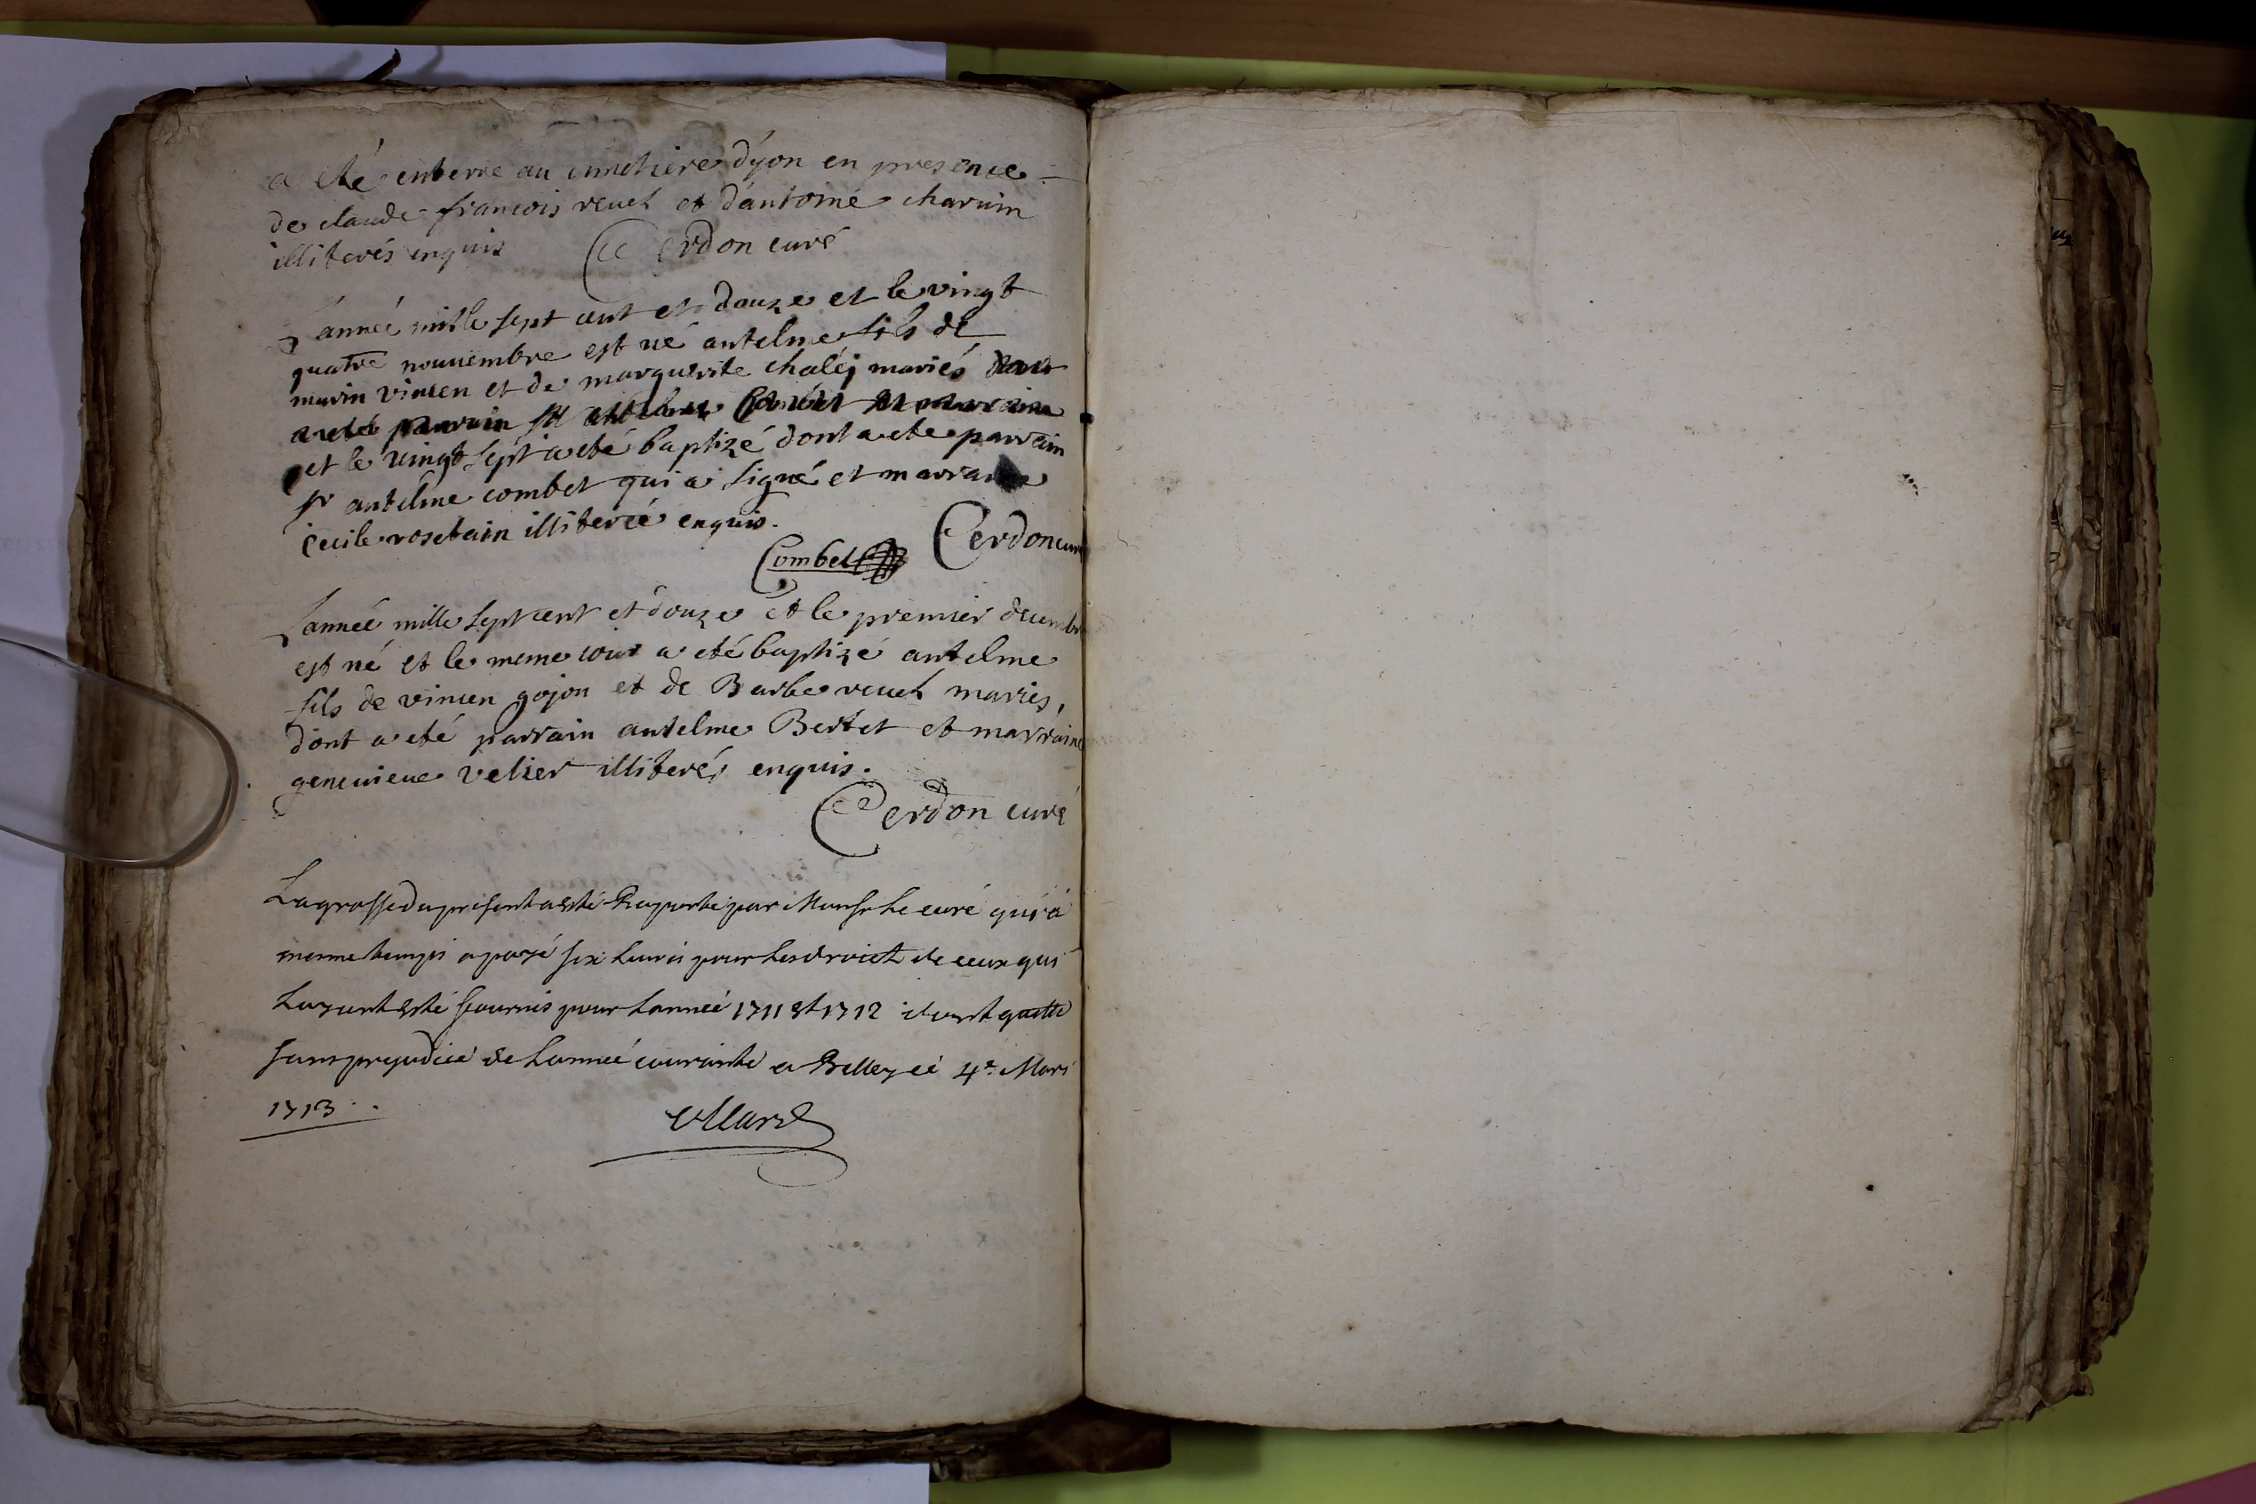 a été enterre au cimetiere d'yon en presence
de claude françois reuet et d'antoine charuin
illiterés enquis Cerdon curé
L'année mille sept cent et douze et le vingt
quatre nouuembre est né antelme fils de
marin vincen et de marguerite chaléj mariés dont
a eté parrain sr antelme Combet et marraine
et le vingt sept a eté baptizé dont a ete parrain
sr antelme combet qui a signé et marraine
Cecile rosetain illiteree enquis.
Combet Cerdon curé
L'année mille sept cent et douze et le premier decembre
est né et le meme iour a eté baptizé antelme
fils de vincen gojon et de Barbe reuet mariés,
dont a eté parrain antelme Bertet et marraine
geneuieue velier illiterés enquis.
Cerdon curé
La grosse du present a esté Raporté par Monsr le curé qui a
mesme temps a payé six liures pour les droict de ceux qui
luy ont esté fournis pour l'année 1711 et 1712 dont quitte
sans prejudice de l'année courante a Belley ce 4e. Mars
1713..